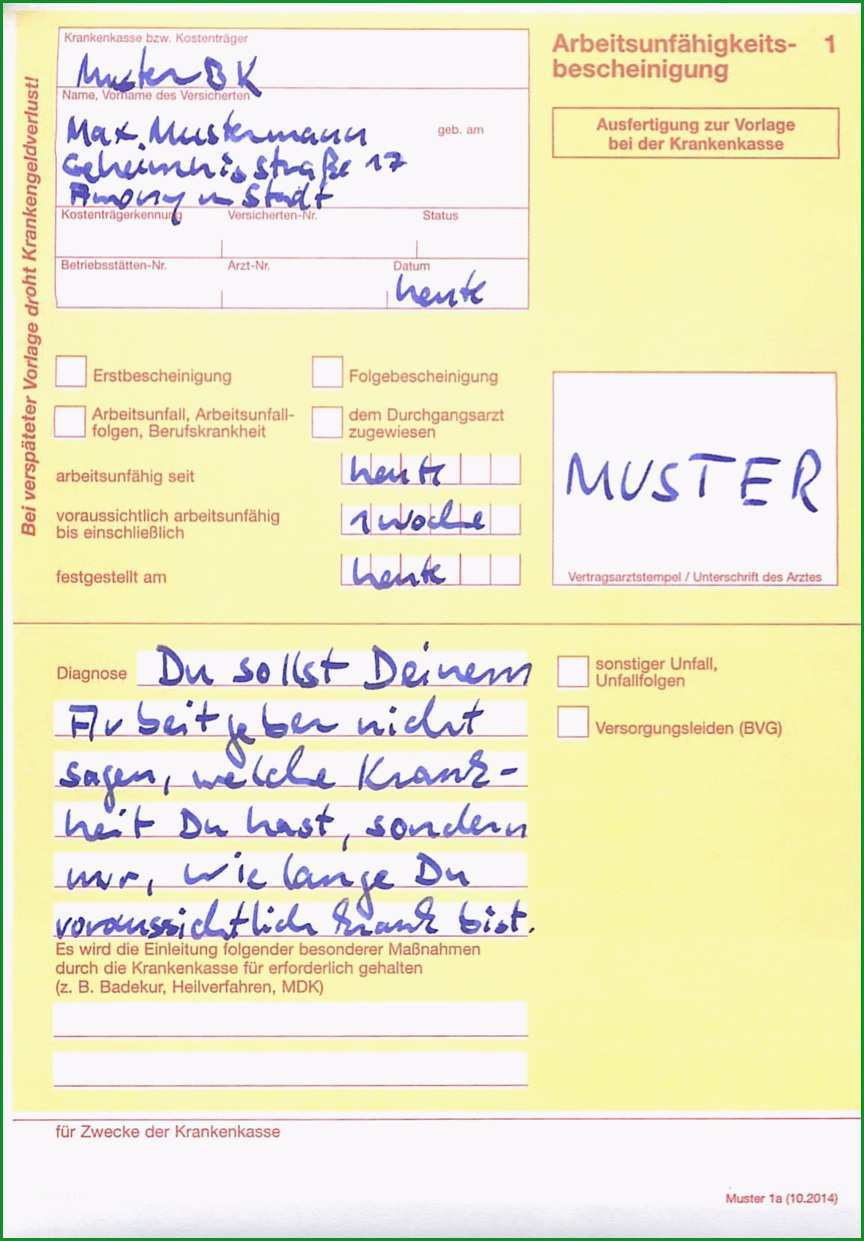 Bei verspäteter Vorlage droht Krankengeldverlust!
Krankenkasse bzw. Kostenträger
Muster BK
Name, Vorname des Versicherten
Max Mustermann
geb. am
Geheimnisstraße 17
Stadt
Kostenträgerkennung Versicherten-Nr. Status
Betriebsstätten-Nr. Arzt-Nr. Datum
heute
Arbeitsunfähigkeits- 1
bescheinigung
Ausfertigung zur Vorlage
bei der Krankenkasse
Erstbescheinigung Folgebescheinigung
Arbeitsunfall, Arbeitsunfall-
folgen, Berufskrankheit
dem Durchgangsarzt
zugewiesen
arbeitsunfähig seit heute
voraussichtlich arbeitsunfähig
bis einschließlich 1 Woche
festgestellt am heute
MUSTER
Vertragsarztstempel / Unterschrift des Arztes
Diagnose Du sollst Deinem
Arbeitgeber nicht
sagen, welche Krank-
heit Du hast, sondern
nur, wie lange Du
voraussichtlich krank bist.
sonstiger Unfall,
Unfallfolgen
Versorgungsleiden (BVG)
Es wird die Einleitung folgender besonderer Maßnahmen
durch die Krankenkasse für erforderlich gehalten
(z. B. Badekur, Heilverfahren, MDK)
für Zwecke der Krankenkasse
Muster 1a (10.2014)